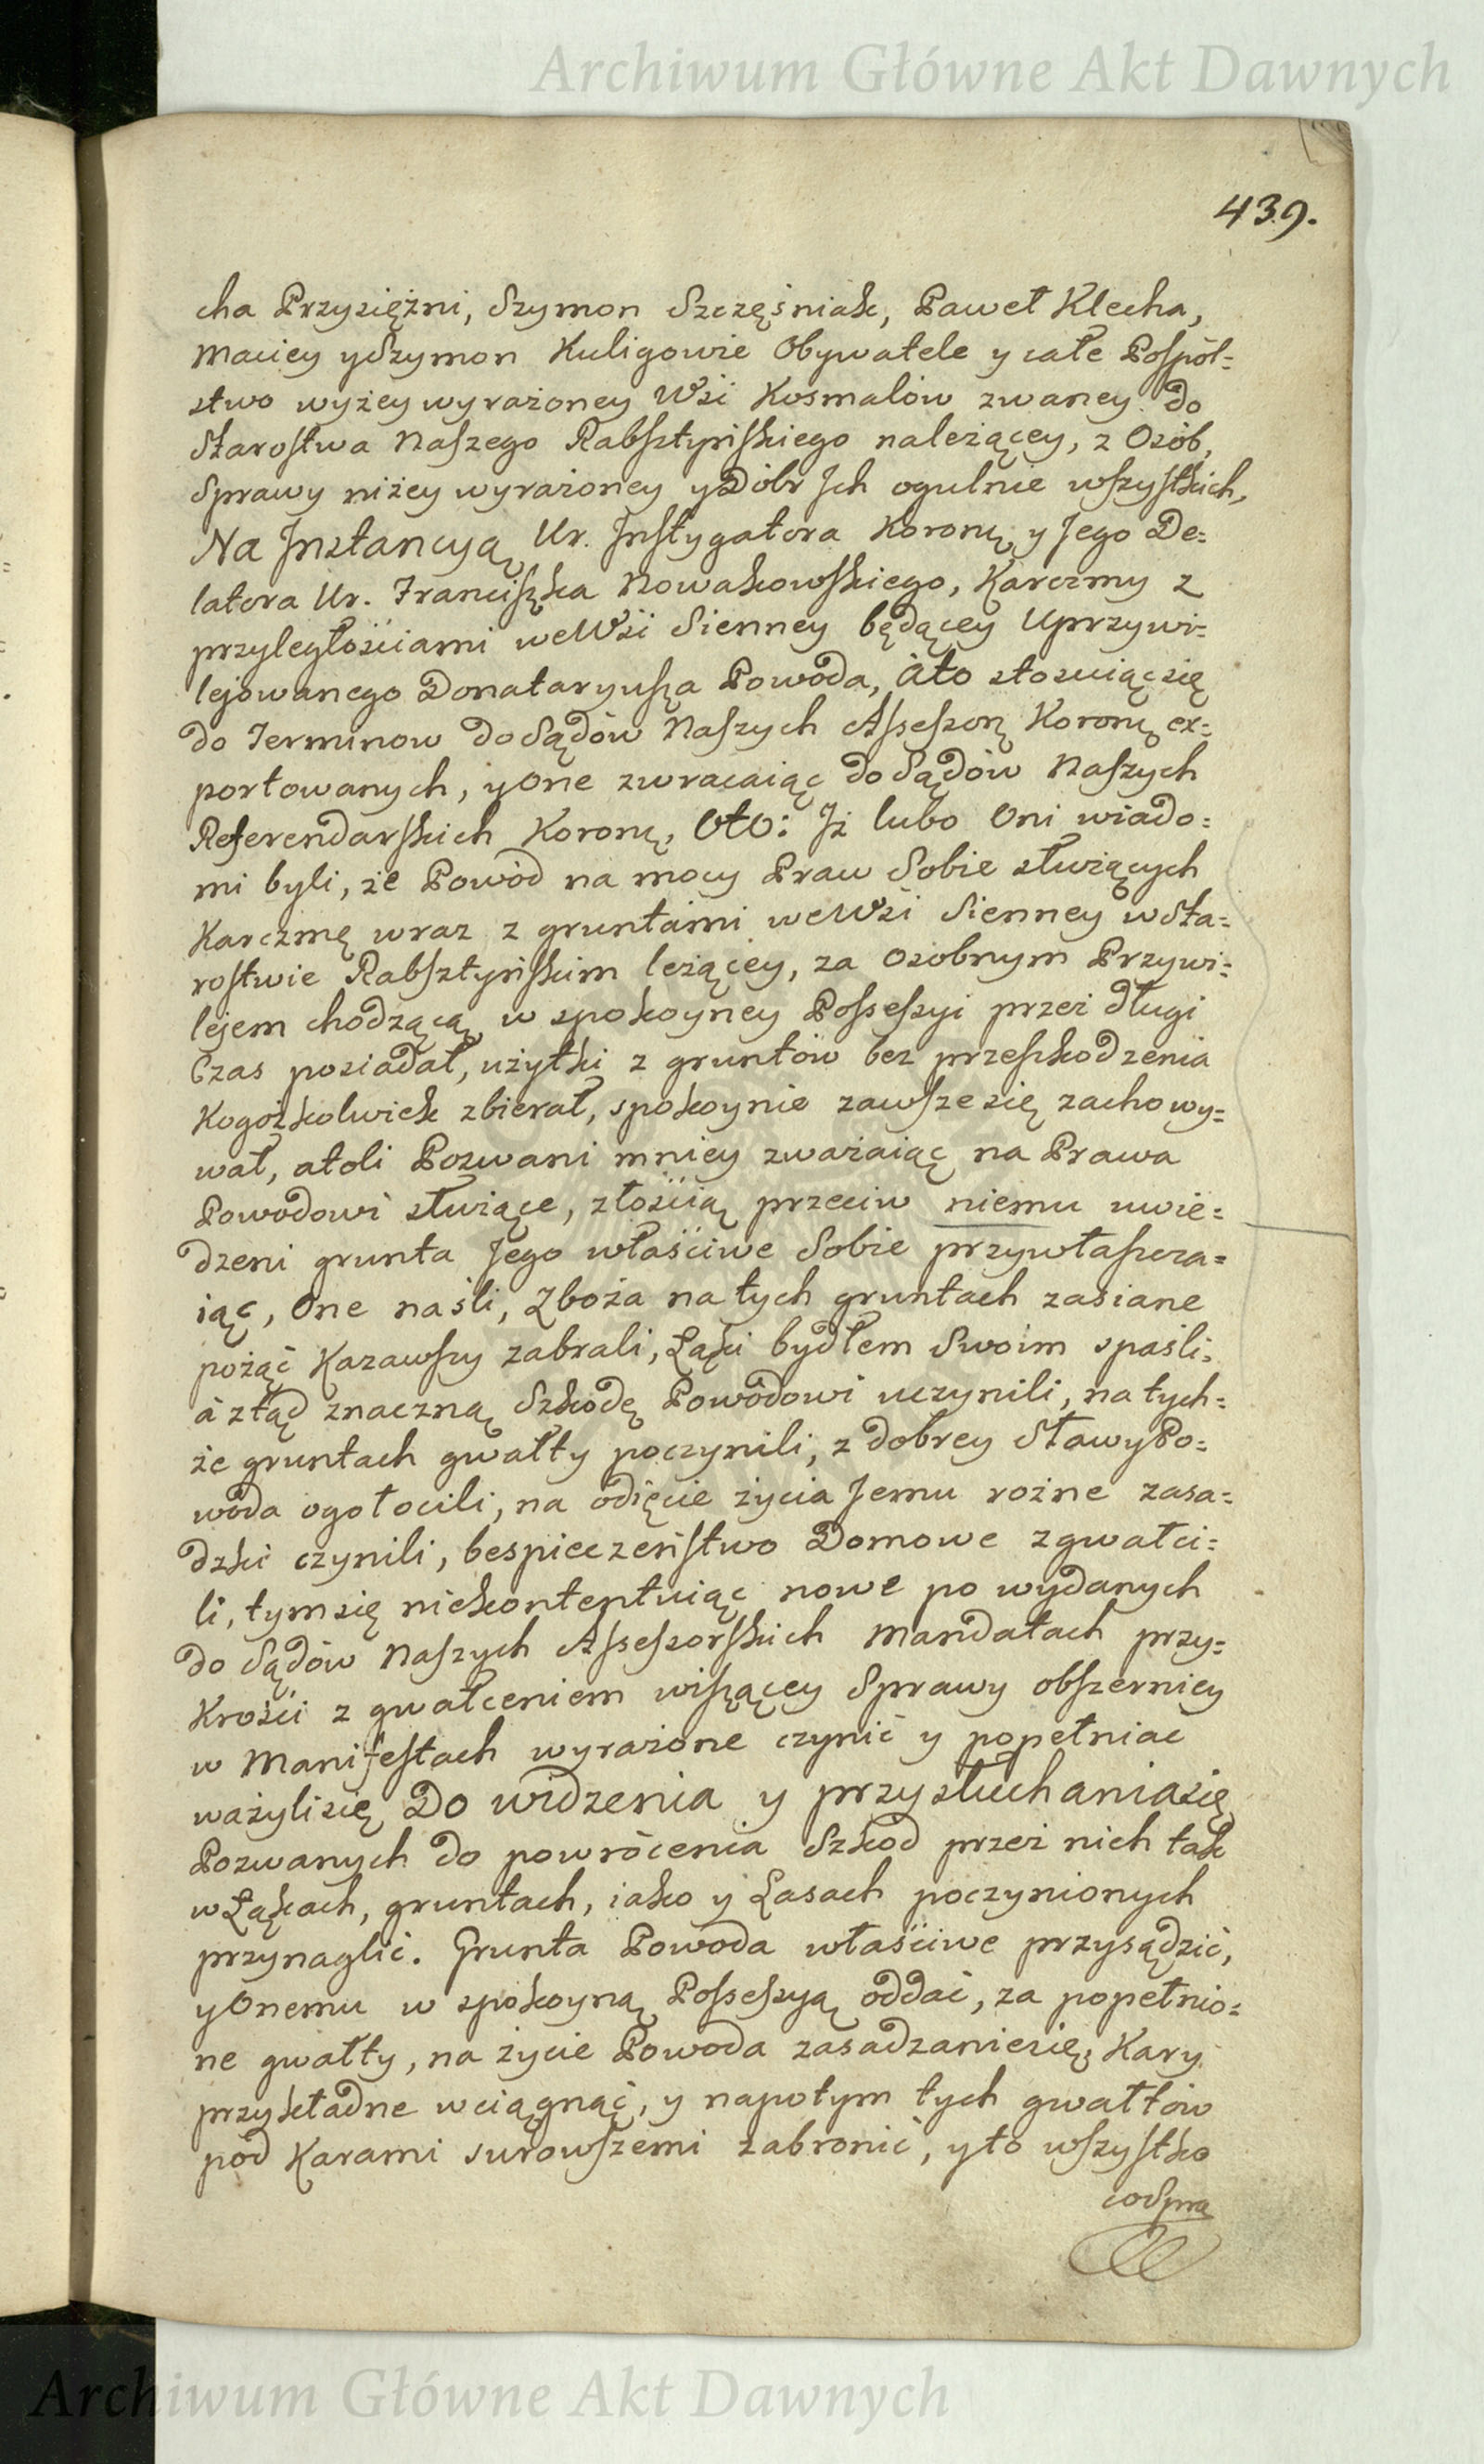 Archiwum Główne Akt Dawnych
439.
cha Przysiężni, Szymon Szczęśniak, Paweł Klecha,
Maciey y Szymon Kuligowie Obywatele y całe Pospól=
stwo wyżey wyrażoney Wsi Kosmalów zwaney do
Starostwa Naszego Rabsztyńskiego należącey, z Osób,
Sprawy niżey wyrażoney y Dóbr Ich ogulnie wszystkich,
Na Instancyą Ur. Instygatora Koronn. y Jego De=
latora Ur. Franciszka Nowakowskiego, Karczmy z
przyległościami we Wsi Sienney będącey Uprzywi=
lejowanego Donataryusza Powoda, á to stosuiąc się
do Terminow do Sądów Naszych Assesson. Koronn. ex=
portowanych, y One zwracaiąc do Sądów Naszych
Referendarskich Koronn. Oto: Iż lubo Oni wiado=
mi byli, że Powód na mocy Praw Sobie służących
Karczmę wraz z gruntami we Wsi Sienney w Sta=
rostwie Rabsztyńskim leżącey, za Osobnym Przywi=
lejem chodzącą w spokoyney Possessyi przez długi
Czas posiadał, użytki z gruntów bez przeszkodzenia
Kogożkolwiek zbierał, spokoynie zawsze się zachowy=
wał, atoli Pozwani mniey zważaiąc na Prawa
Powodowi służące, złością przeciw niemu uwie=
dzeni grunta Jego właściwe Sobie przywłaszcza=
iąc, One naśli, Zboża na tych gruntach zasiane
pożąć Kazawszy zabrali, Łąki bydłem Swoim spaśli,
á ztąd znaczną Szkodę Powodowi uczynili, na tych=
że gruntach gwałty poczynili, z dobrey Sławy Po=
woda ogołocili, na odięcie życia Jemu rożne zasa=
dzki czynili, bespieczeństwo Domowe zgwałci=
li, tym się niekontentuiąc nowe po wydanych
do Sądów Naszych Assessorskich Mandatach przy=
Krości z gwałceniem wiszącey Sprawy obszerniey
w Manifestach wyrażone czynić y popełniać
ważyli się Do widzenia y przysłuchania się
Pozwanych do powrócenia Szkod przez nich tak
w Łąkach, gruntach, iako y Lasach poczynionych
przynaglić. Grunta Powoda właściwe przysądzić,
y Onemu w spokoyną Possessyą oddać, za popełnio=
ne gwałty, na życie Powoda zasadzanie się, Kary
przykładne wciągnąć, y napotym tych gwałtów
pod Karami surowszemi zabronić, y to wszystko
co Spra
Archiwum Główne Akt Dawnych